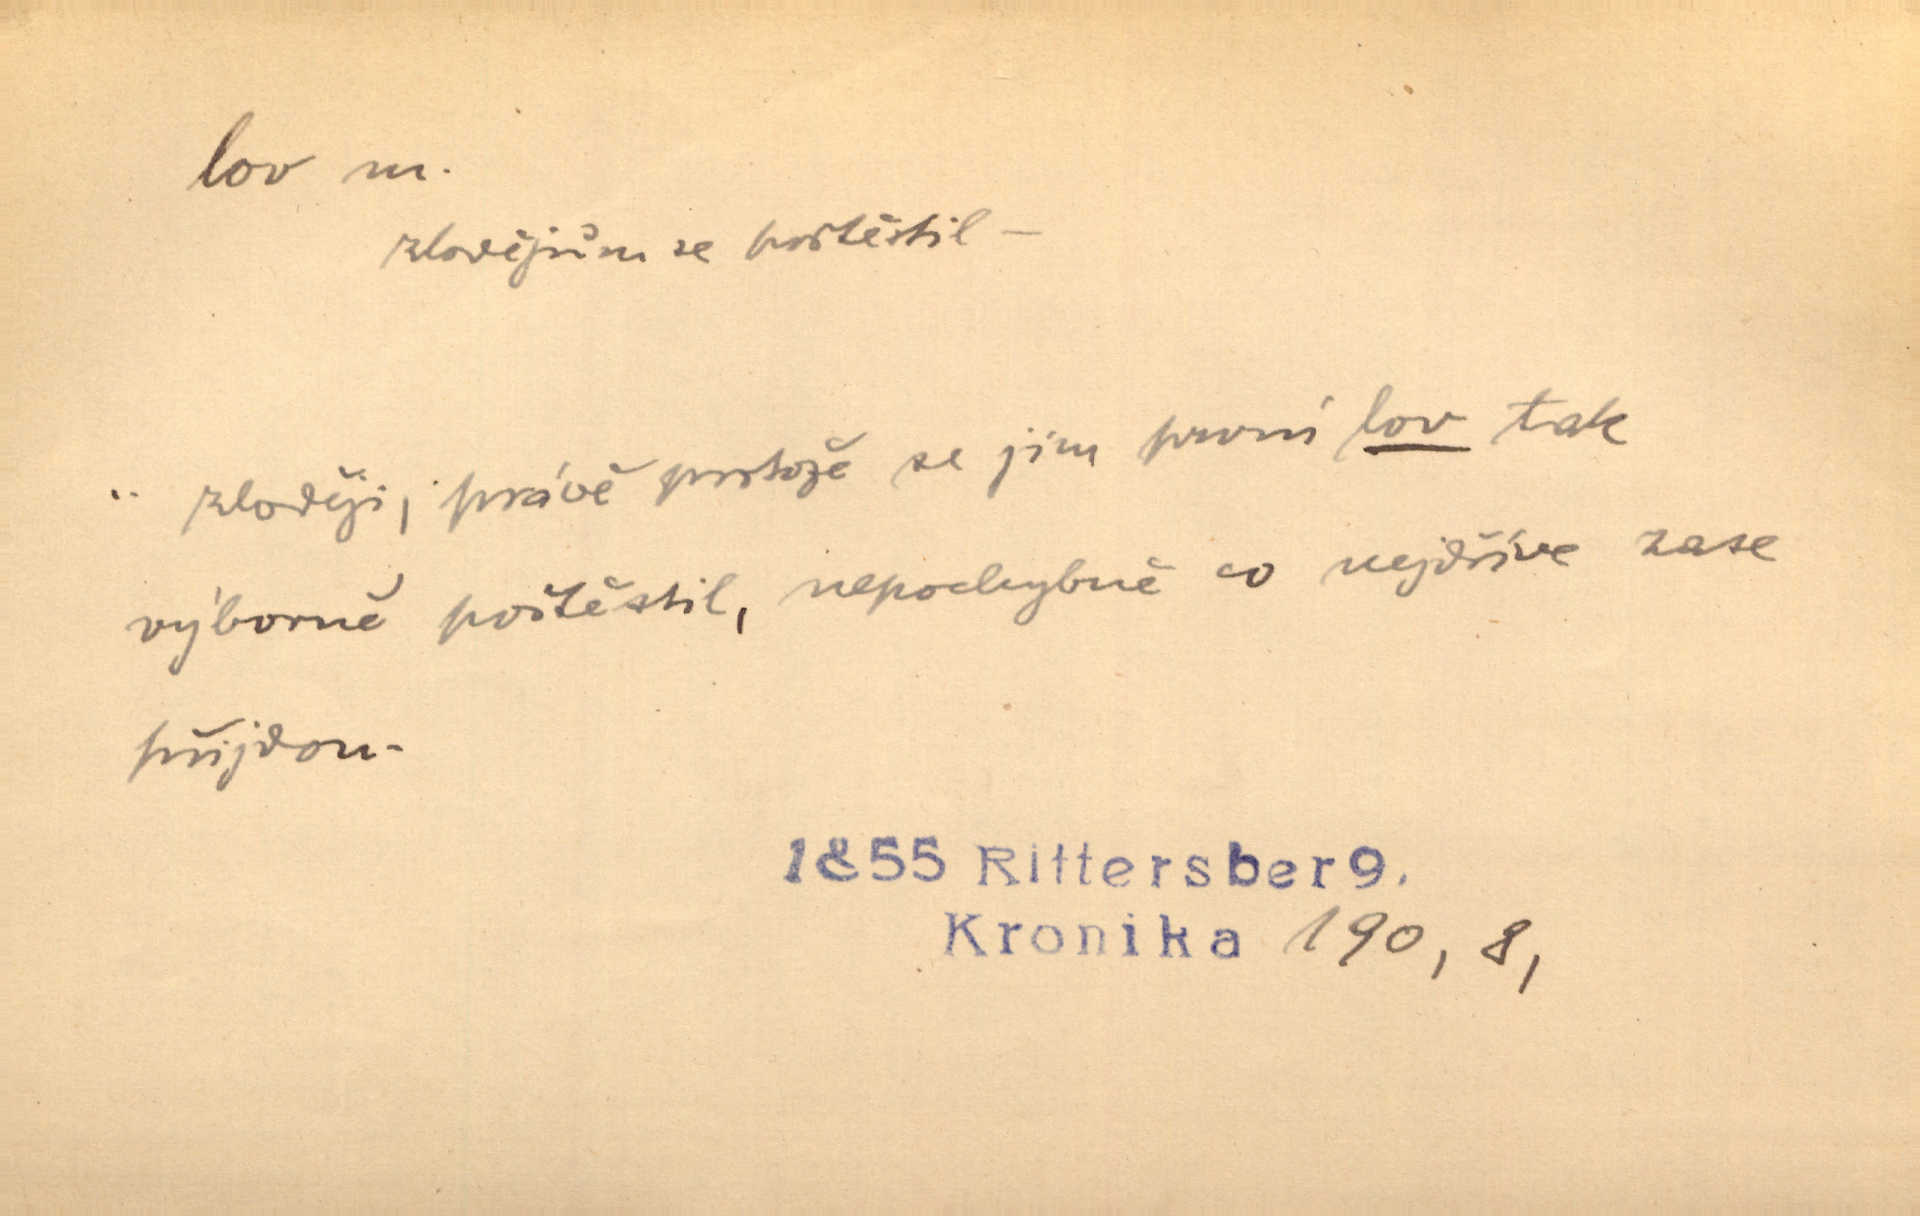 lov m.
zlodějům se poštěstil –
.. zloději, právě protože se jim první lov tak
výborně poštěstil, nepochybně co nejdříve zase
přijdou.
1855 Rittersberg.
Kronika 190, 8,